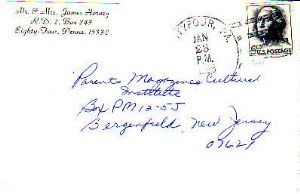 Mr. & Mrs. James Horacy
R.D. 2, Box 243
Eighty-Four, Penna. 15330
JAN
28
P.M.
5c U.S. POSTAGE
Parents Magazines Cultural
Institute
Box PM12-55
Bergenfield, New Jersey
07621